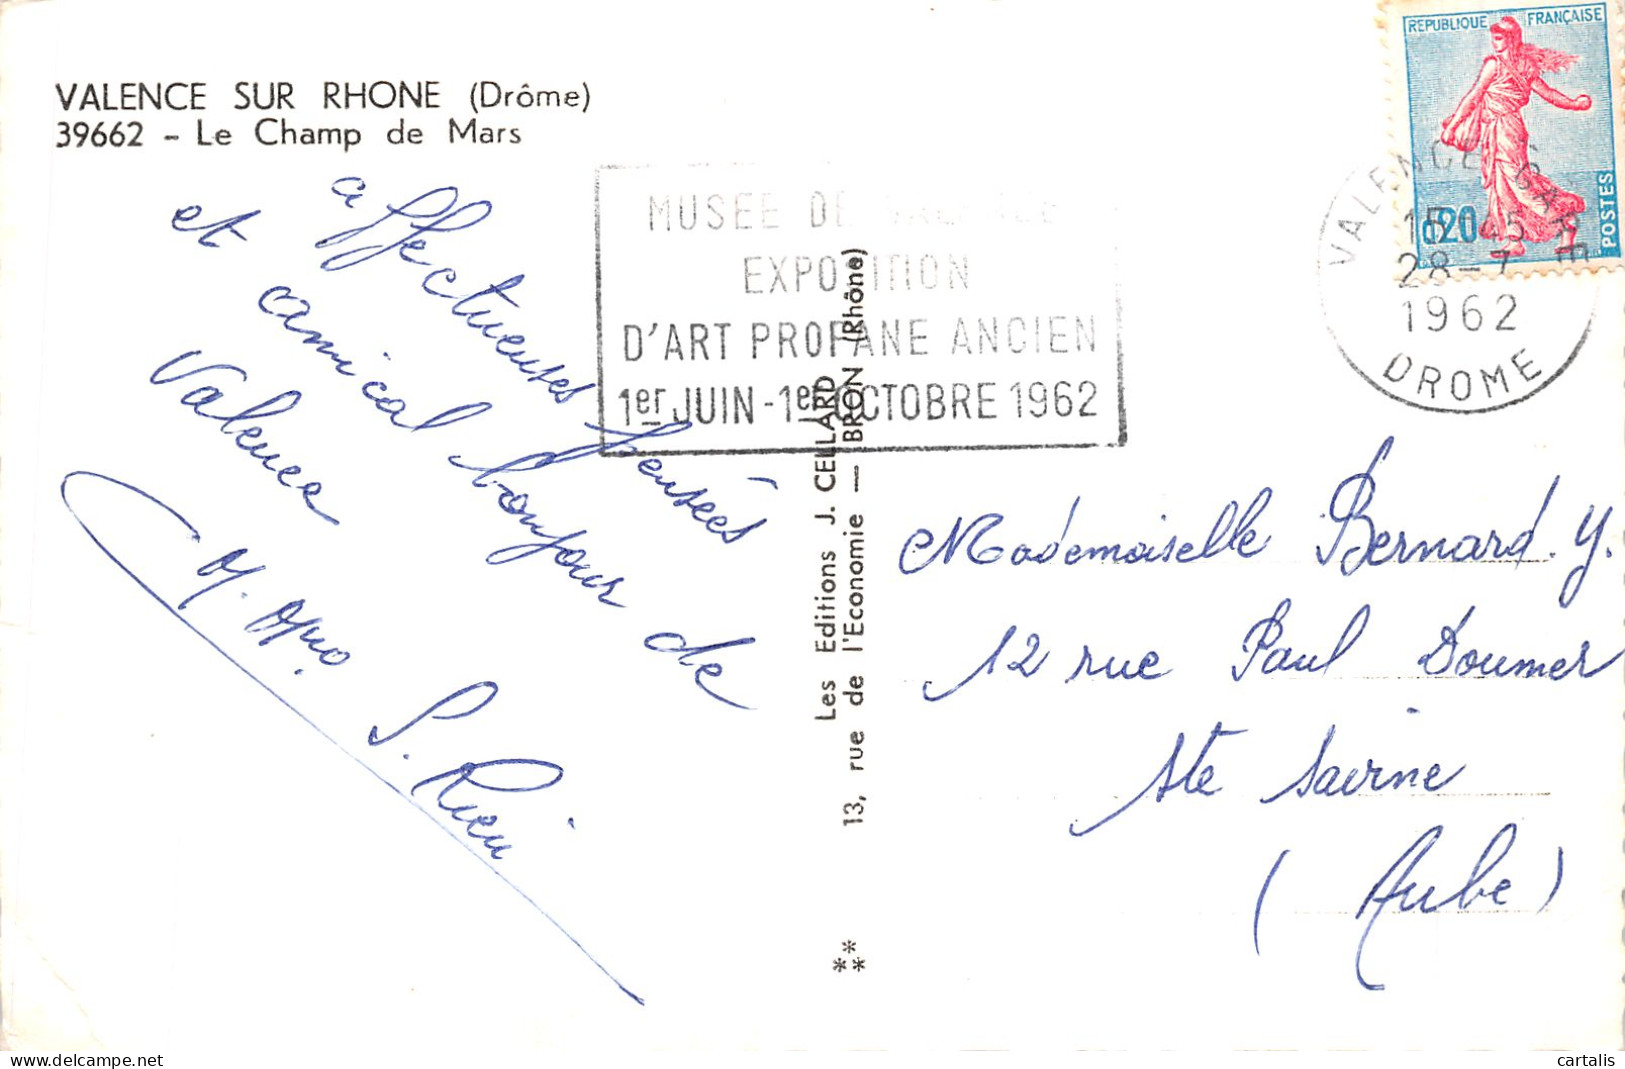 VALENCE SUR RHONE (Drôme)
39662 - Le Champ de Mars
affectueuses pensées
et amical bonjour de
Valence
S. Rieu
MUSEE DE VALENCE
EXPOSITION
D'ART PROFANE ANCIEN
1er JUIN - 1er OCTOBRE 1962
Les Editions J. CELLARD
13, rue de l'Economie — BRON (Rhône)
**
**
REPUBLIQUE FRANÇAISE
0,20
POSTES
VALENCE GARE
15 H 45
28 - 7
1962
DROME
Mademoiselle Bernard. Y.
12 rue Paul Doumer
Ste Savine
(Aube)
delcampe.net
cartalis